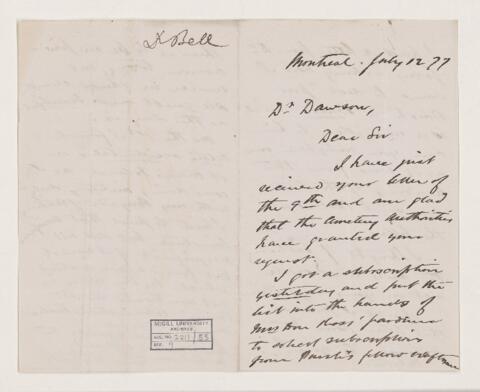 Dr Bell
McGILL UNIVERSITY
ARCHIVES
ACC. NO. 2211/55
REF. 9
Montreal. July 12 77
Dr Dawson,
Dear Sir
I have just
received your letter of
the 9th and am glad
that the Cemetery Authorities
have granted your
request.
I got a subscription
yesterday and put the
list into the hands of
Ross' gardener
to solicit subscriptions
from fellow craftsmen